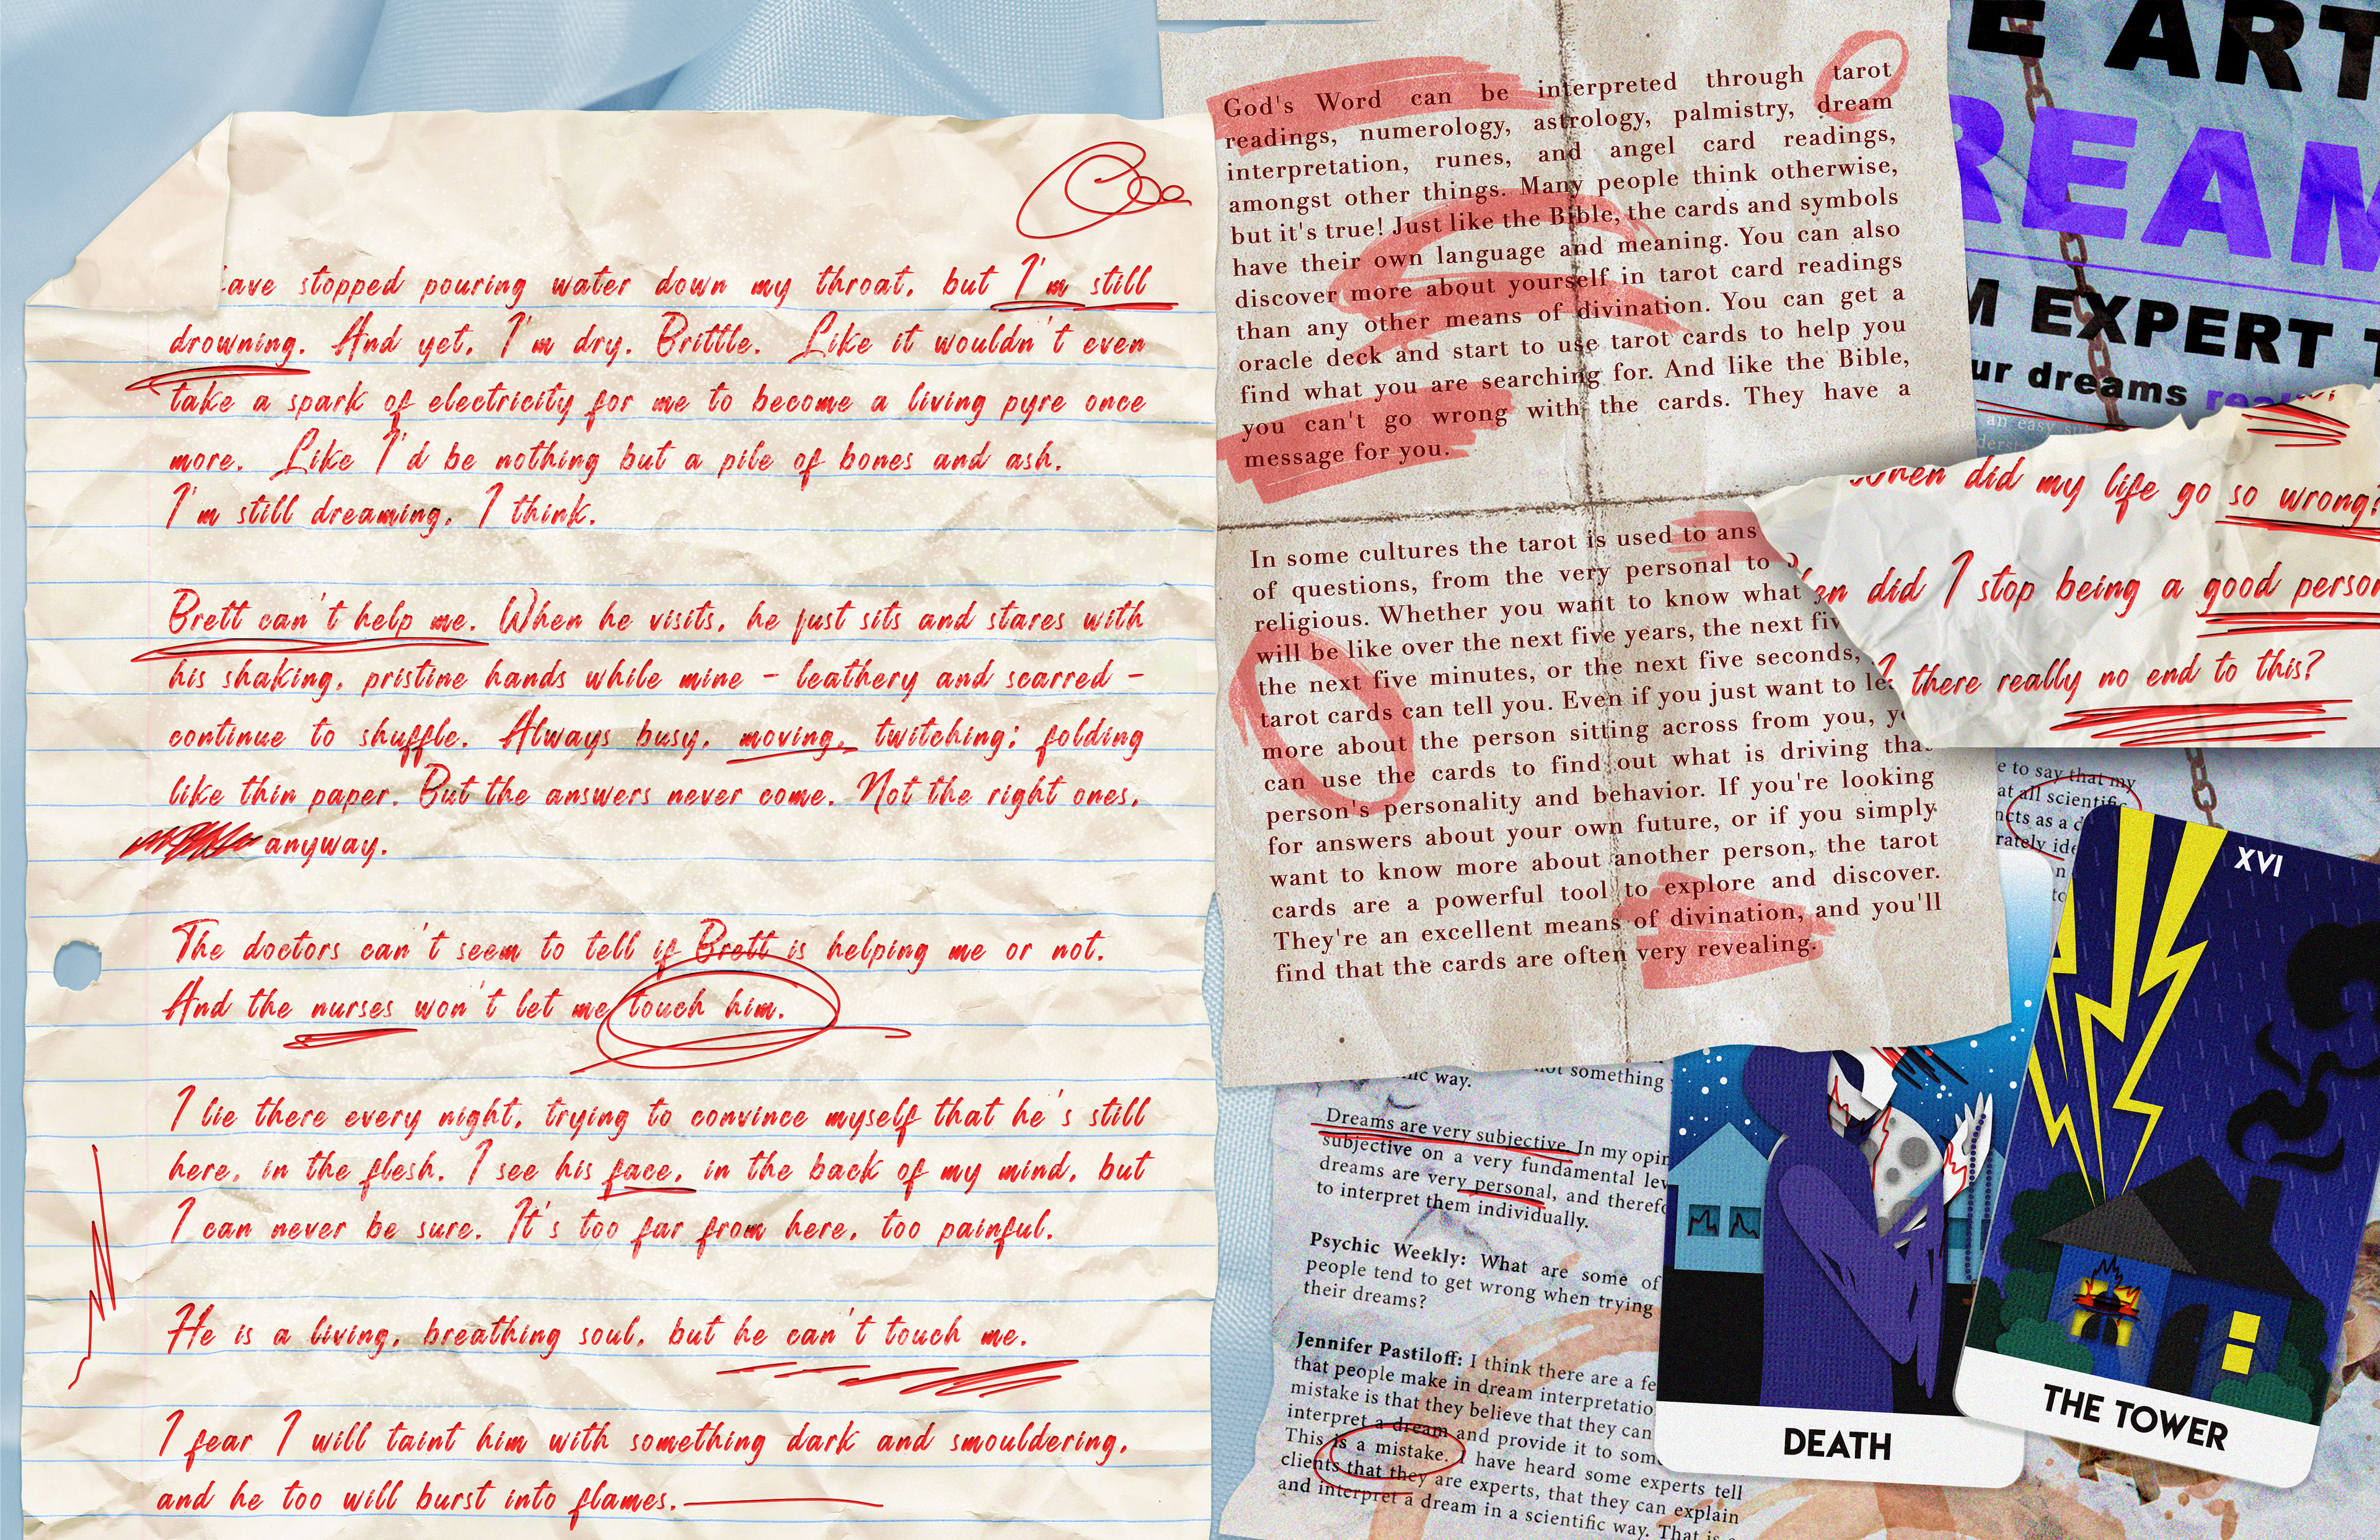 ave stopped pouring water down my throat, but I'm still
drowning. And yet, I'm dry. Brittle. Like it wouldn't even
take a spark of electricity for me to become a living pyre once
more. Like I'd be nothing but a pile of bones and ash.
I'm still dreaming, I think.
Brett can't help me. When he visits, he just sits and stares with
his shaking, pristine hands while mine - leathery and scarred -
continue to shuffle. Always busy, moving, twitching; folding
like thin paper. But the answers never come. Not the right ones,
anyway.
The doctors can't seem to tell if Brett is helping me or not.
And the nurses won't let me touch him.
I lie there every night, trying to convince myself that he's still
here, in the flesh. I see his face, in the back of my mind, but
I can never be sure. It's too far from here, too painful.
He is a living, breathing soul, but he can't touch me.
I fear I will taint him with something dark and smouldering,
and he too will burst into flames.
God's Word can be interpreted through tarot
readings, numerology, astrology, palmistry, dream
interpretation, runes, and angel card readings,
amongst other things. Many people think otherwise,
but it's true! Just like the Bible, the cards and symbols
have their own language and meaning. You can also
discover more about yourself in tarot card readings
than any other means of divination. You can get a
oracle deck and start to use tarot cards to help you
find what you are searching for. And like the Bible,
you can't go wrong with the cards. They have a
message for you.
In some cultures the tarot is used to ans
of questions, from the very personal to
religious. Whether you want to know what
will be like over the next five years, the next fiv
the next five minutes, or the next five seconds,
tarot cards can tell you. Even if you just want to le
more about the person sitting across from you, y
can use the cards to find out what is driving that
person's personality and behavior. If you're looking
for answers about your own future, or if you simply
want to know more about another person, the tarot
cards are a powerful tool to explore and discover.
They're an excellent means of divination, and you'll
find that the cards are often very revealing.
E ART
REAM
M EXPERT T
ur dreams
an easy
when did my life go so wrong?
en did I stop being a good person
there really no end to this?
e to say that my
at all scientific
ncts as a d
rately ide
n
to
ic way.
not something
Dreams are very subjective. In my opin
subjective on a very fundamental lev
dreams are very personal, and therefo
to interpret them individually.
Psychic Weekly: What are some of
people tend to get wrong when trying
their dreams?
Jennifer Pastiloff: I think there are a fe
that people make in dream interpretatio
mistake is that they believe that they can
interpret a dream and provide it to som
This is a mistake. I have heard some experts tell
clients that they are experts, that they can explain
and interpret a dream in a scientific way. That is
DEATH
XVI
THE TOWER